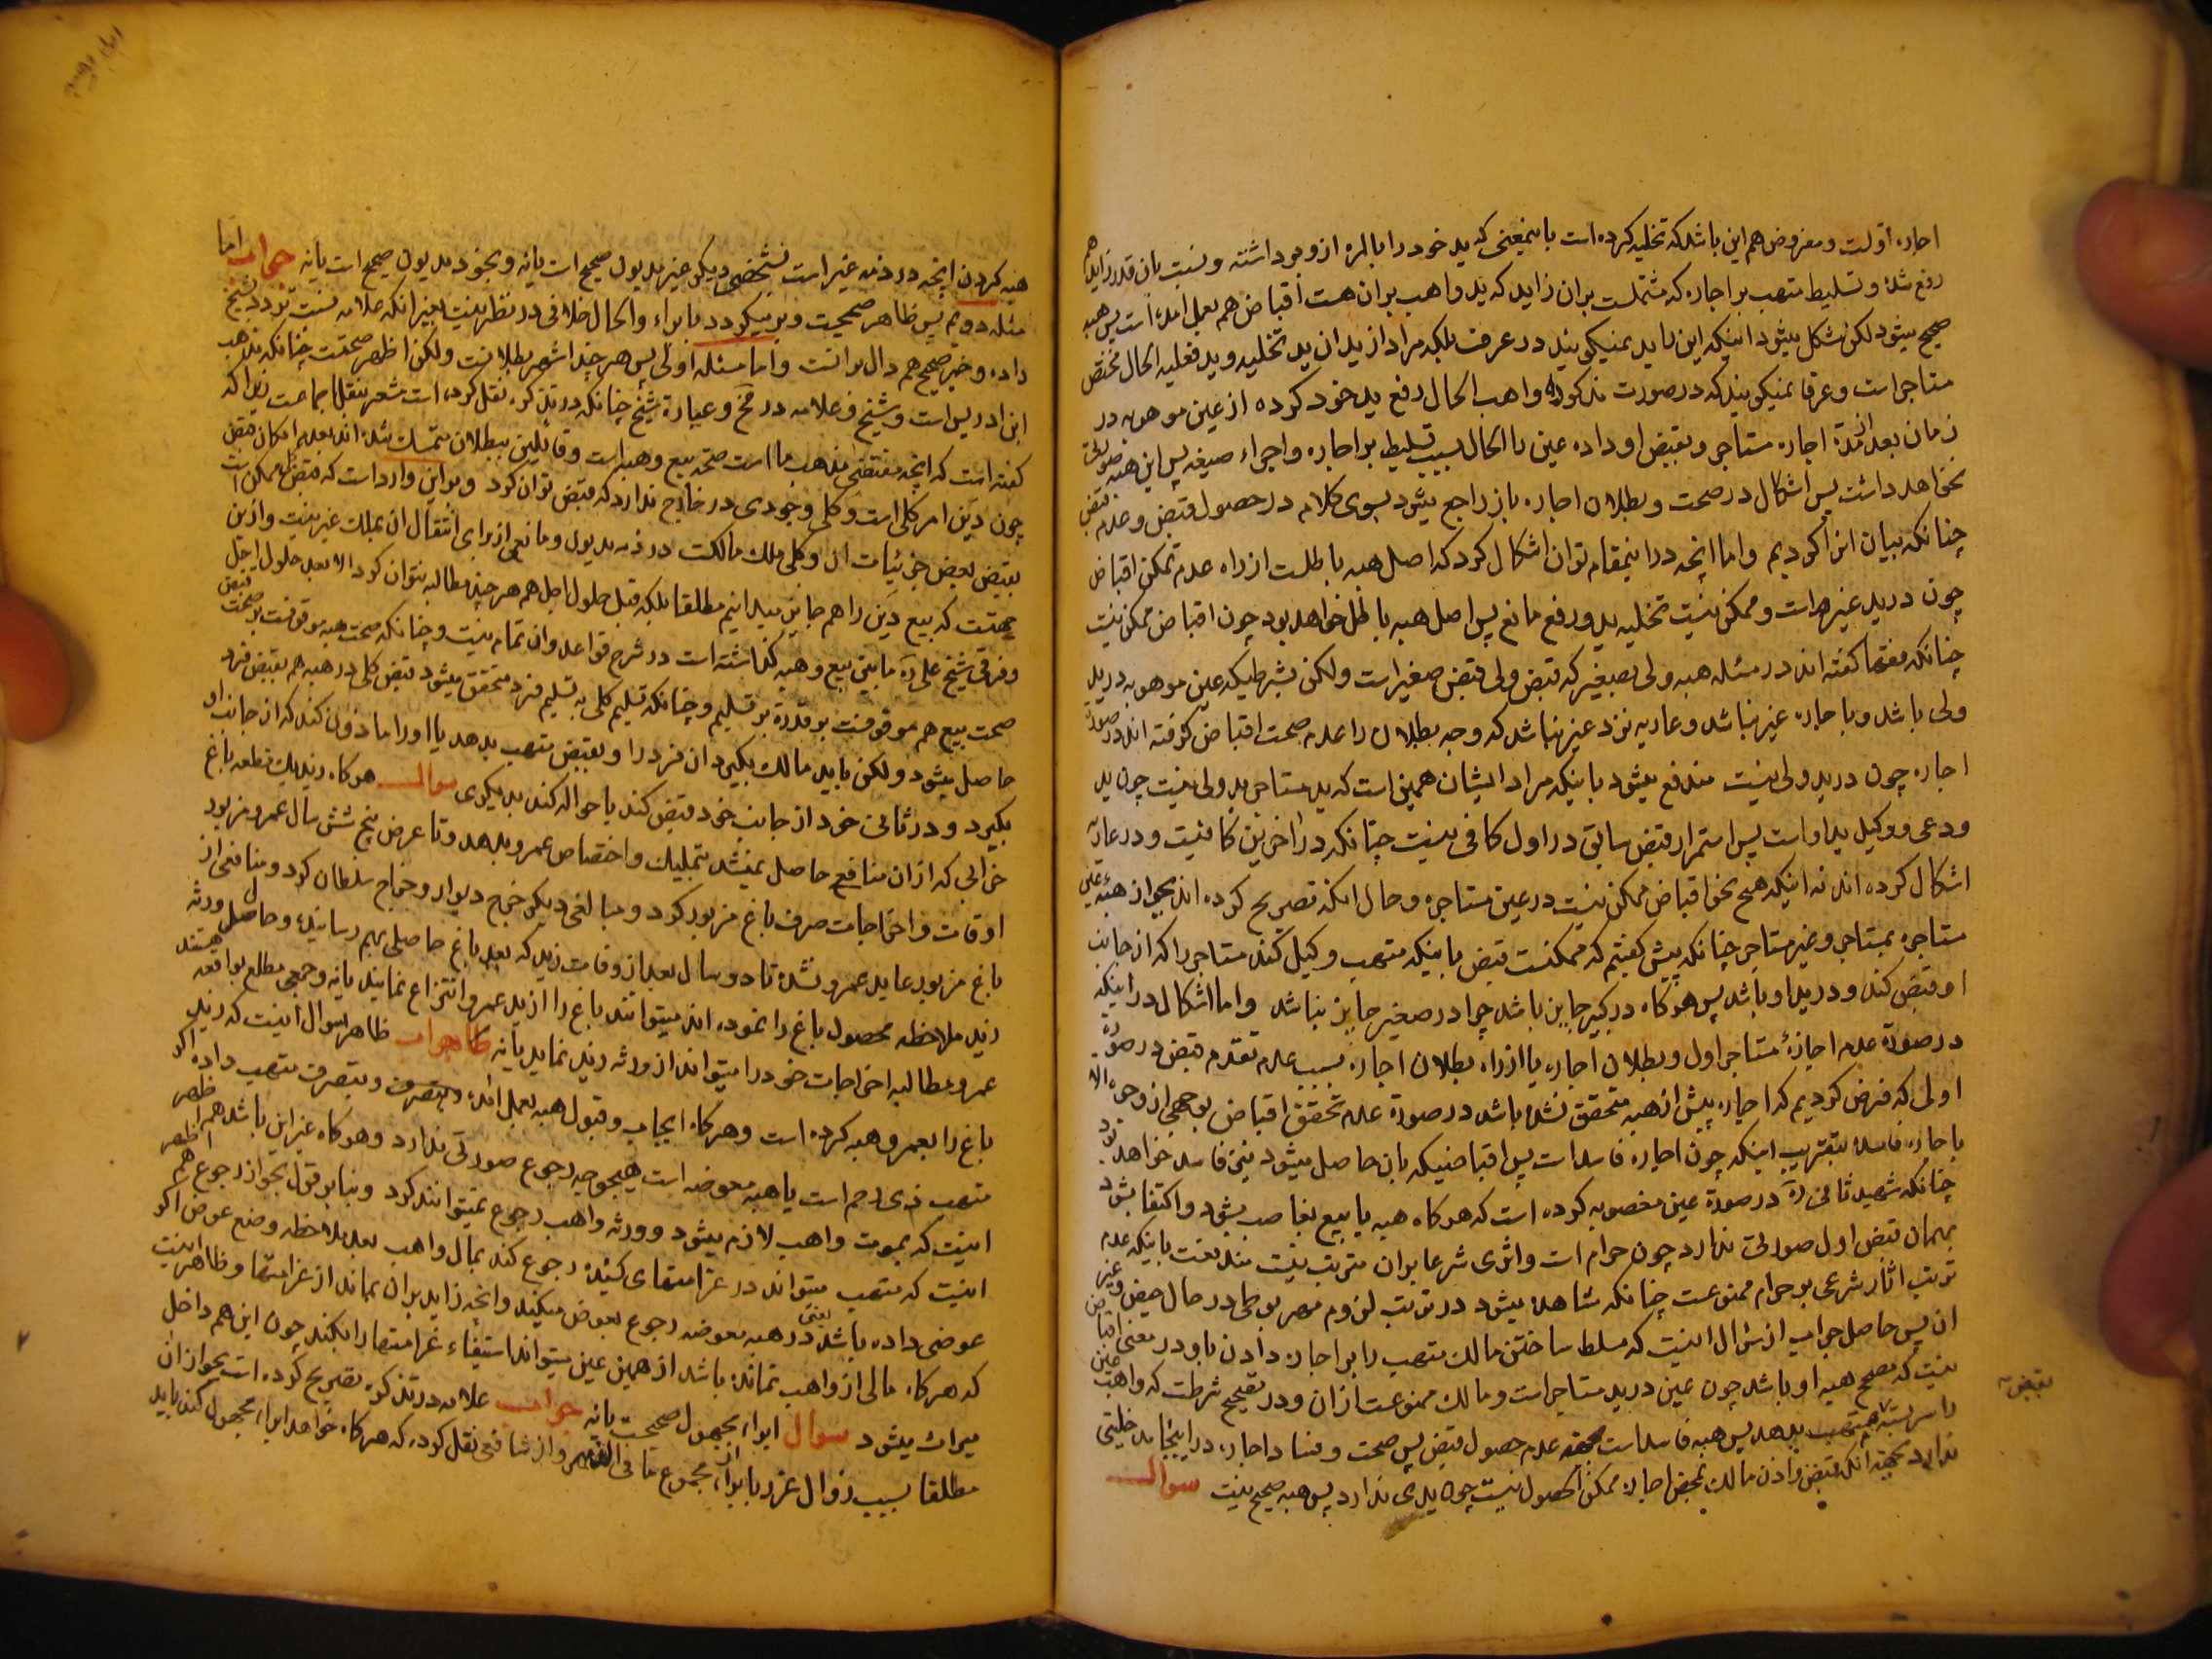 اجاره اولست ومفروض هم این باشد که تخلیه کرده است باینمعنی که ید خود را بالمره ازو برداشته ونسبت بان قدر زاید هم
رفع شده وتسلیط متهب بر اجاره که مشتملست بران زاید که ید واهب بران هست اقباض هم بعمل امده است پس هبه
صحیح میشود لکن مشکل میشود اینکه این را ید نمیکویند در عرف بلکه مراد از ید ان ید تخلیه وید فعلیه الحال مختص
مستاجر است وعرفا نمیکویند که در صورت مذکوره واهب الحال رفع ید خود کرده از عین موهوبه در
زمان بعد المدة اجاره مستاجر وبقبض او داده عین را الحال بسبب تسلیط بر اجاره واجراء صیغه پس این هبه صورتی
نخواهد داشت پس اشکال در صحت وبطلان اجاره باز راجع میشود بسوی کلام در حصول قبض وعدم قبض
چنانکه بیان انرا کردیم واما انچه در اینمقام توان اشکال کرد که اصل هبه باطلست از راه عدم تمکن اقباض
چون در ید غیر است وممکن نیست تخلیه ید ورفع مانع پس اصل هبه باطل خواهد بود چون اقباض ممکن نیست
چنانکه فقها کفته اند در مسئله هبه ولی بصغیر که قبض ولی قبض صغیر است ولکن بشرطیکه عین موهوبه در ید
ولی باشد وباجاره غیر نباشد وعاریه نزد غیر نباشد که وجه بطلان را عدم صحت اقباض کرفته اند در صورة
اجاره چون در ید ولی نیست مندفع میشود باینکه مراد ایشان همین است که ید مستاجر ید ولی نیست چون ید
ودعی ووکیل ید او است پس استمرار قبض سابق در اول کافی نیست چنانکه در اخرین کافیست ودر عاریه
اشکال کرده اند نه اینکه هیچ نحو اقباض ممکن نیست در عین مستاجره وحال انکه تصریح کرده اند بجواز هبه عین
مستاجره بمستاجر وغیر مستاجر چنانکه پیش کفتیم که ممکنست قبض باینکه متهب وکیل کند مستاجر را که از جانب
او قبض کند ودر ید او باشد پس هرکاه در کبیر جایز باشد چرا در صغیر جایز نباشد واما اشکال در اینکه
در صورة عدم اجازۀ مستاجر اول وبطلان اجاره یا از راه بطلان اجاره بسبب عدم تقدم قبض در صورة
اولی که فرض کردیم که اجاره پیش از هبه متحقق نشده باشد در صورة عدم تحقق اقباض بوجهی از وجوه الا
باجاره فاسده بتقریب اینکه چون اجاره فاسد است پس اقباضیکه بان حاصل میشود نیز فاسد خواهد بود
چنانکه شهید ثانی ره در صورة عین مغصوبه کرده است که هرکاه هبه یا بیع بغاصب بشود واکتفا بشود
بهمان قبض اول صورتی ندارد چون حرام است واثری شرعا بران مترتب نیست مندفعست باینکه عدم
ترتب اثار شرعی بر حرام ممنوعست چنانکه مشاهده میشود در ترتب لزوم مهر بوطی در حال حیض وغیر
ان پس حاصل جواب از سؤال اینست که مسلط ساختن مالک متهب را بر اجاره دادن باو در معنی اقباض
نیست که مصحح هبه او باشد چون عین در ید مستاجر است ومالک ممنوعست ازان ودر تصحیح شرطست که واهب عین
را سر بسته بمتهب بدهد پس هبه فاسد است بجهة عدم حصول قبض پس صحت وفساد اجاره در اینجا مدخلیتی
ندارد بجهة انکه قبض واذن مالک بمحض اجاره ممکن الحصول نیست چون یدی ندارد پس هبه صحیح نیست سوال
بقبض
هبه کردن انچه در ذمه غیر است بشخصی دیکر غیر مدیون صحیح است یا نه وبخود مدیون صحیح است یا نه جواب اما
مسئله دویم پس ظاهر صحتست وبرمیکردد بابراء والحال خلافی در نظر نیست بغیر انکه علامه نسبت تردد بشیخ
داده وخبر صحیح هم دال برانست واما مسئله اولی پس هر چند اشهر بطلانست ولکن اظهر صحتست چنانکه مذهب
ابن ادریس است وشیخ وعلامه در مخ وعبارة شیخ چنانکه در تذکره نقل کرده است مشعر بنقل اجماعست زیرا که
کفته است که انچه مقتضی مذهب ما است صحة بیع وهبه است وقائلین ببطلان متمسک شده اند بعدم امکان قبض
چون دین امر کلی است وکلی وجودی در خارج ندارد که قبض توان کرد وبر این وارد است که قبض کل ممکن است
بقبض بعض جزئیات ان وکلی ملک مالکست در ذمه مدیون ومانعی از برای انتقال ان بملک غیر نیست وازین
جهتست که بیع دین را هم جایز میدانیم مطلقا بلکه قبل حلول اجل هم هر چند مطالبه نتوان کرد الا بعد حلول اجل
وفرقی شیخ علی ره ما بین بیع وهبه کذاشته است در شرح قواعد وان تمام نیست وچنانکه صحت هبه موقوفست بر صحت قبض
صحت بیع هم موقوفست بر قدرة بر تسلیم وچنانکه تسلیم کلی به تسلیم فرد متحقق میشود قبض کلی در هبه هم بقبض فرد
حاصل میشود ولکن باید مالک بکیرد ان فرد را وبقبض متهب بدهد یا او را ماذون کند که از جانب او
بکیرد ودر ثانی خود از جانب خود قبض کند یا حواله کند بدیکری سوال هرکاه زید یک قطعه باغ
خرابی که ازان منافع حاصل نمیشد بتملیک واختصاص عمرو بدهد وتا عرض پنج شش سال عمرو مزبور
اوقات واخراجات صرف باغ مزبور کرد ومبالغی دیکر خرج دیوار وخراج سلطان کرد ومنافعی از
باغ مزبور عاید عمرو نشده تا دو سال بعد از وفات زید که بعد باغ حاصلی بهم رسانیده وحاصل ورثه
زید ملاحظه محصول باغ را نموده اند میتوانند باغ را از ید عمرو انتزاع نمایند یا نه وجمعی مطلع بواقعه هستند
عمرو مطالبه اخراجات خود را میتواند از ورثه زید نماید یا نه جواب ظاهر سوال اینست که زید
باغ را بعمرو هبه کرده است وهرکاه ایجاب وقبول هبه بعمل امده وبتصرف متهب داده اکر
متهب ذی رحم است یا هبه معوضه است هیچوجه رجوع صورتی ندارد وهرکاه غیر این باشد هم اظهر
اینست که بموت واهب لازم میشود وورثه واهب رجوع نمیتوانند کرد وبنا بر قول بجواز رجوع هم اظهر
اینست که متهب میتواند در غرامتهای کشیده رجوع کند بمال واهب بعد ملاحظه وضع عوض اکر
عوضی داده باشد یعنی در هبه معوضه رجوع بعوض میکند وانچه زاید بران بماند از غرامتها وظاهر اینست
که هرکاه مالی از واهب نمانده باشد از همین عین میتواند استیفاء غرامتها را بکند چون این هم داخل
میراث میشود سوال ابراء مجهول صحیحست یا نه جواب علامه در تذکره تصریح کرده است بجواز ان
مطلقا بسبب زوال غرر بابراء از مجموع ما فی الذمه واز شافعی نقل کرده که هرکاه خواهد ابراء مجهول کند باید